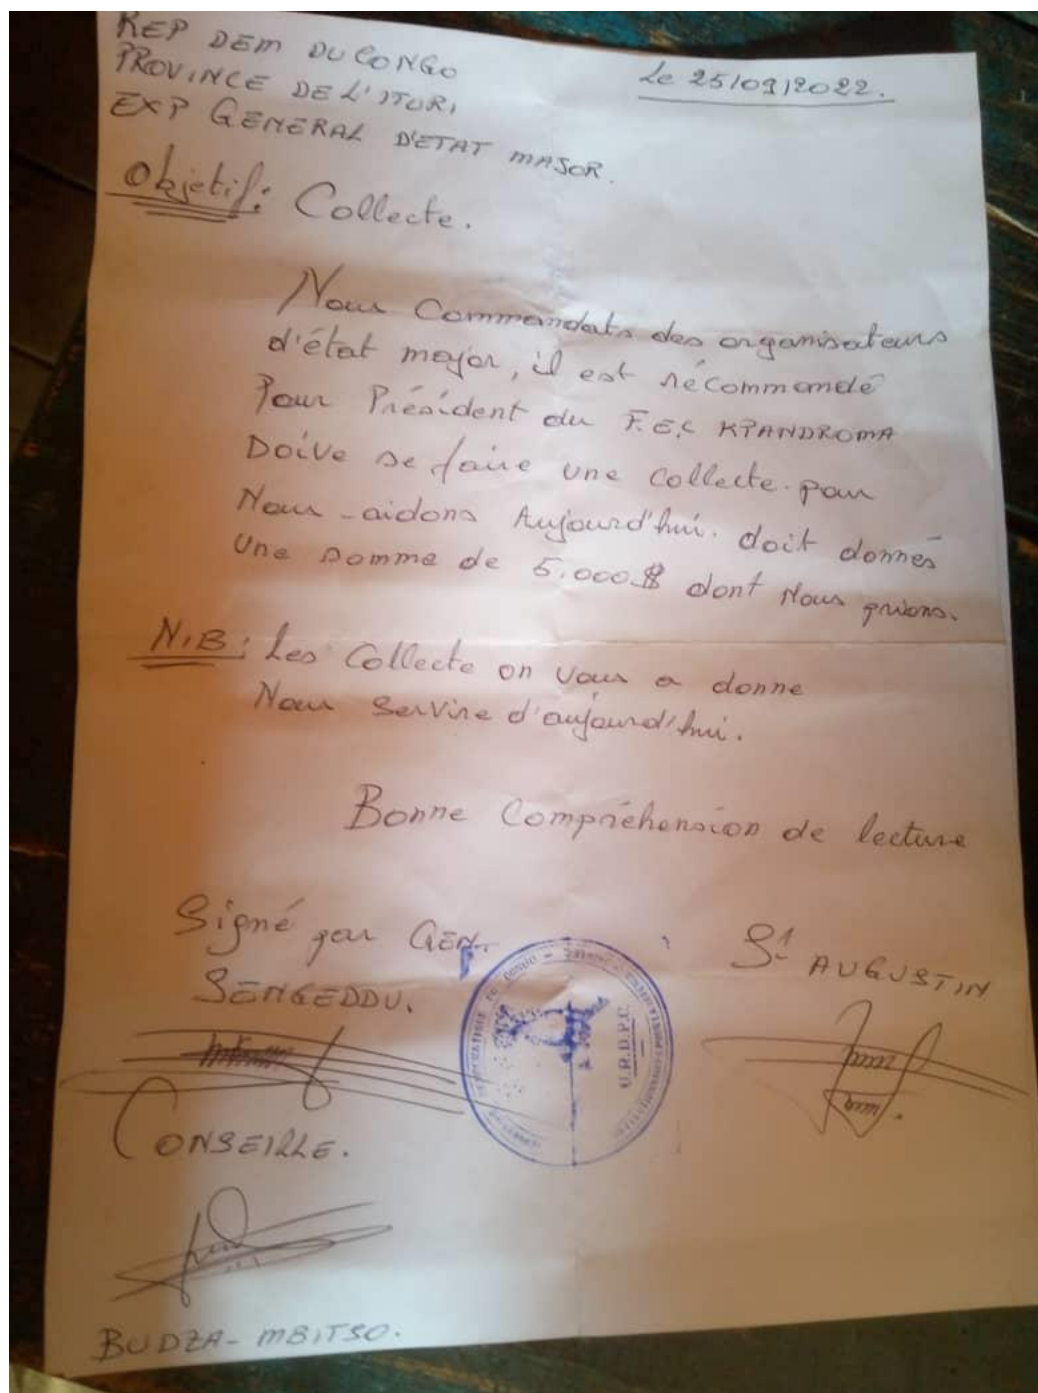 REP DEM DU CONGO
Le 25/09/2022.
PROVINCE DE L'ITURI
EXP GENERAL D'ETAT MAJOR.
Objetif: Collecte.
Nous Commandats des organisateurs
d'état major, il est récommandé
Pour Président du F.E.C KPANDROMA
Doive se faire une collecte pour
Nous-aidons Aujourd'hui. doit donnés
Une somme de 5.000$ dont Nous prions.
N.B: Les Collecte on vous a donne
Nous Servire d'aujourd'hui.
Bonne Compréhension de lecture
Signé par GEN.
SENGEDDU.
St AUGUSTIN
U.R.D.P.C.
CONSEILLE.
BUDZA-MBITSO.